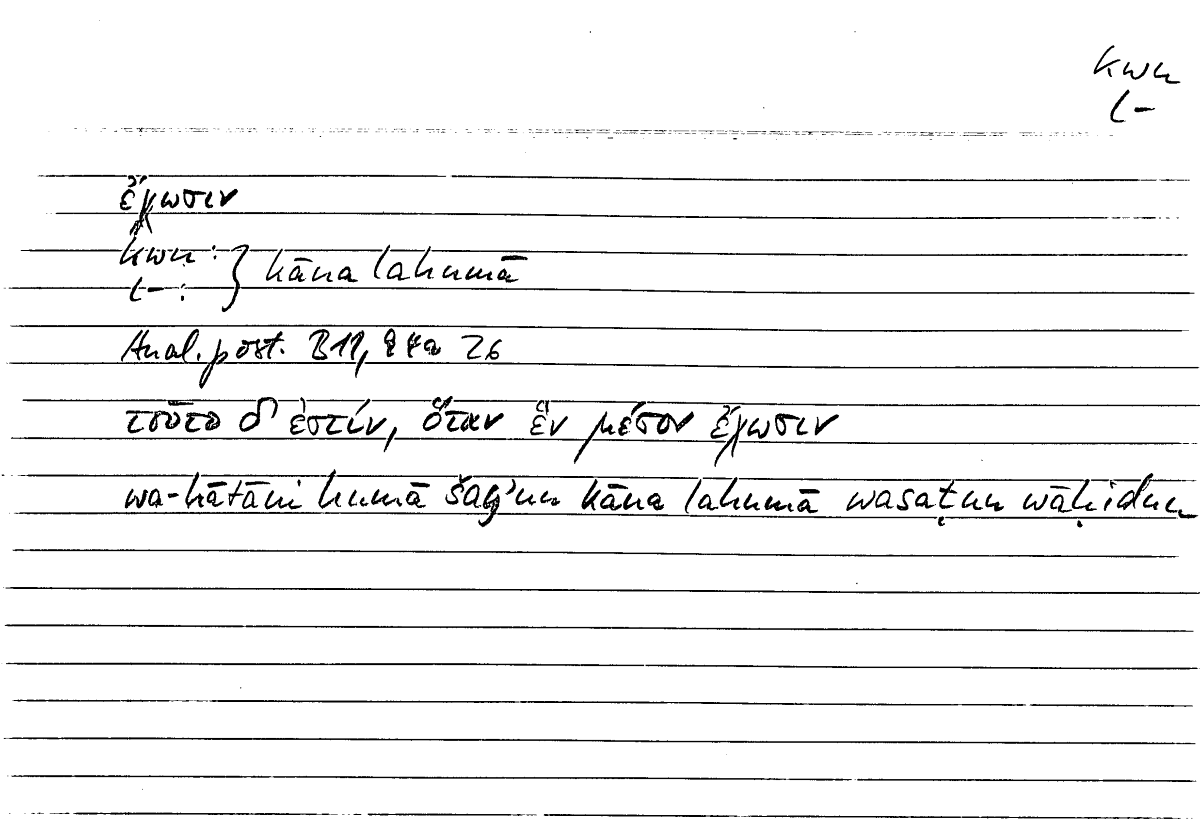 kwn
l-
ἔχωσιν
kwn :
l- : } kāna lahumā
Anal. post. B 11, 94a 26
τοῦτο δ' ἐστίν, ὅταν ἓν μέσον ἔχωσιν
wa-hātāni humā šayʾun kāna lahumā wasaṭun wāḥidun